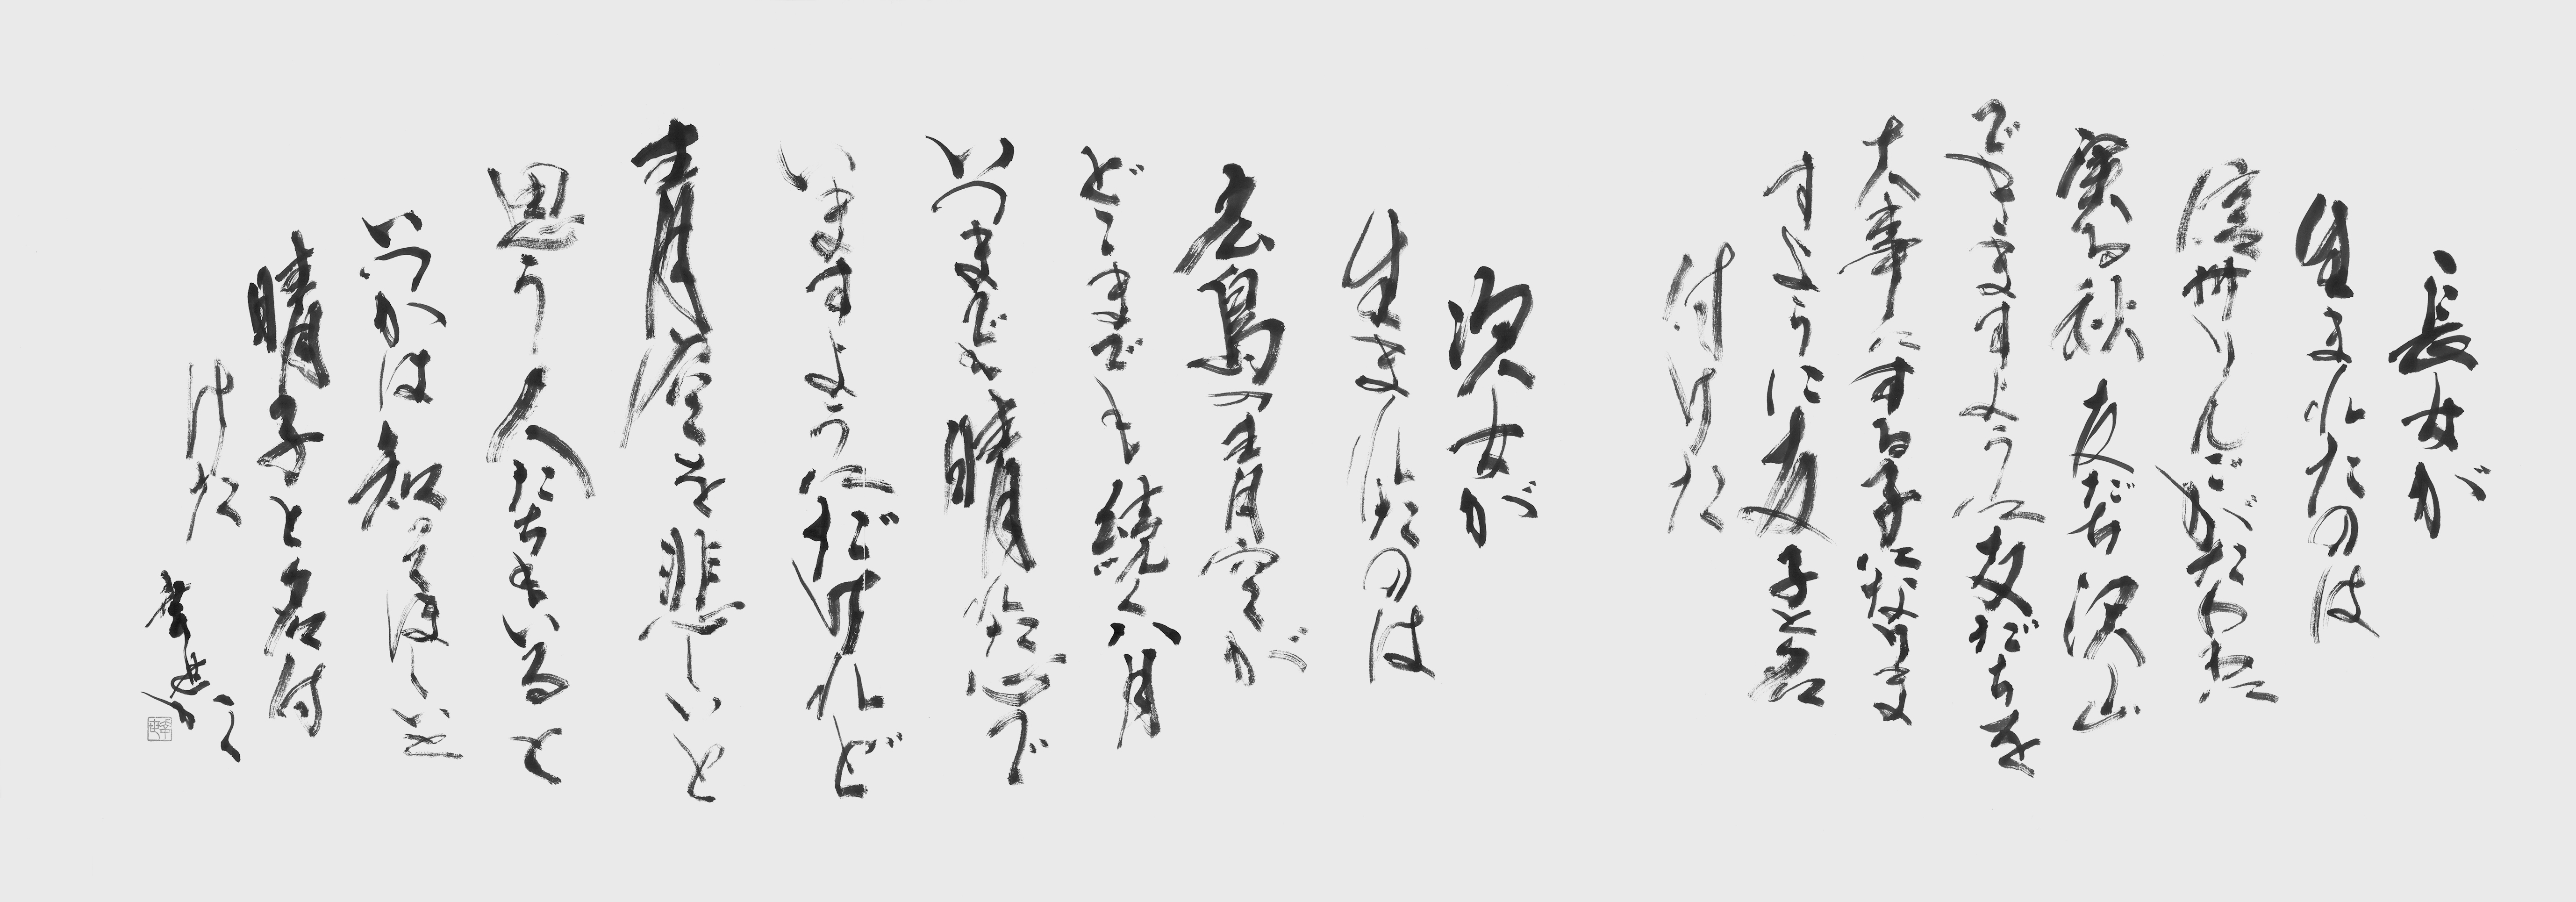 長女が
生まれたのは
信州りんごがたわわに
実る秋友だち沢山
できますように友だちを
大事にする子になりま
すように友子と名
付けた
次女が
生まれたのは
広島の青空が
どこまでも続く八月
いつまでも晴れた心で
いますようにだけれど
青空を悲しいと
思う人たちもいると
いつかは知ってほしいと
晴子と名付
けた